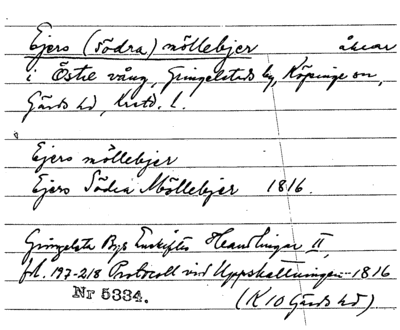 Ejers (Södra) möllebjer åkrar
i Östre vång, Gringelstads by, Köpinge sn,
Gärds hd, Kristd. l.
Ejers möllebjer
Ejers Södra Möllebjer 1816.
Gringelsta Bys Enskiftes Handlingar II,
fol. 197-218 Protocoll vid Uppskattningen 1816
Nr 5334.
(K 10 Gärds hd).